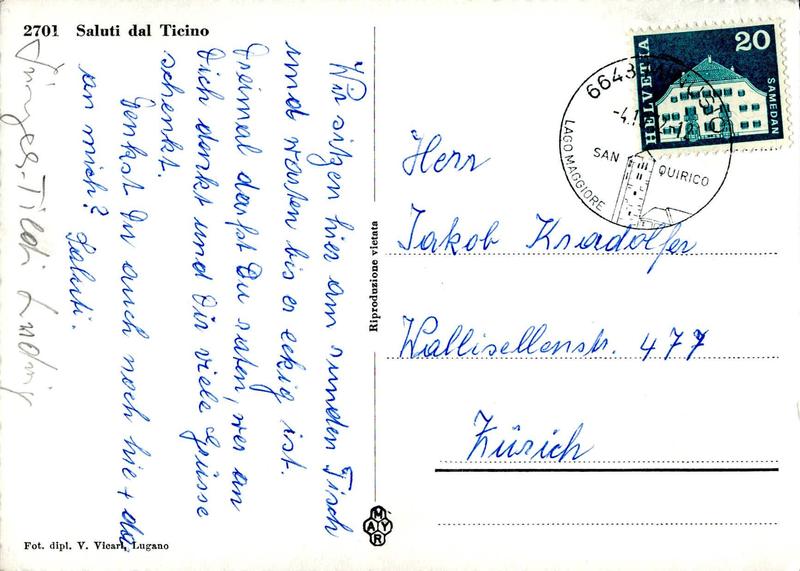 2701 Saluti dal Ticino
Wir sitzen hier am runden Tisch
und warten bis er eckig ist.
Dreimal darfst Du raten, wer an
Dich denkt und Dir viele Grüsse
schenkt.
Denkst Du auch noch hie + da
an mich? Saluti.
Ludwig
Fot. dipl. V. Vicari, Lugano
Riproduzione vietata
MAYR
HELVETIA
20
SAMEDAN
6643
-4.1
SAN QUIRICO
LAGO MAGGIORE
Herr
Jakob Kradolfer
Wallisellenstr. 477
Zürich